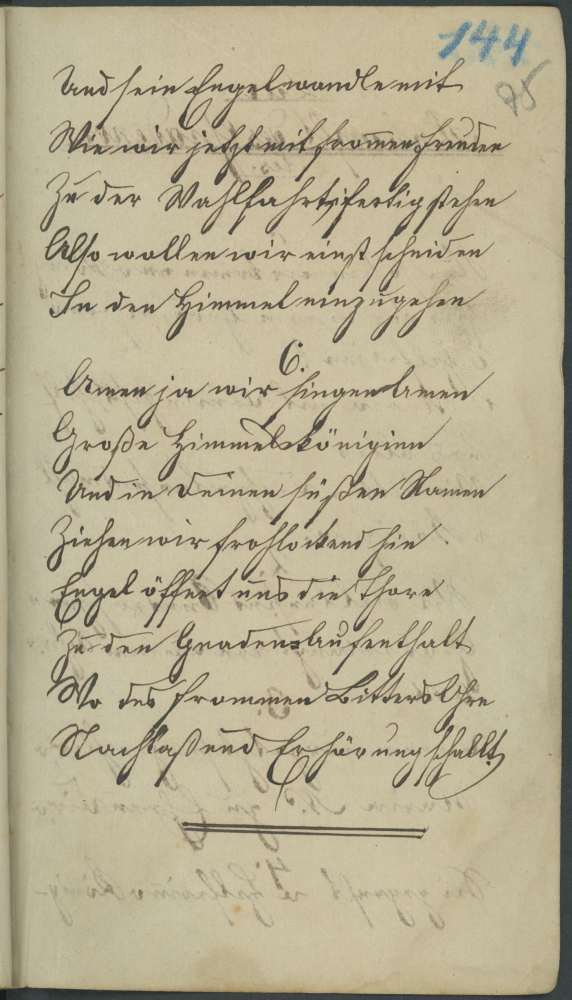 144
95
Und sein Engel wandle mit
Wie wir jetzt mit frommen Freuden
Zu der Wahlfahrt fertig stehen
Also wollen wir einst scheiden
In den Himmel einzugehen
6.
Amen ja wir singen Amen
Große Himmelsköniginn
Und in Deinen süßen Namen
Ziehen wir frohlockend hin
Engel öffnet uns die Thore
Zu den Gnaden Aufenthalt
Wo des frommen Bitters Ohre
Nachlaß und Erhörung schallt